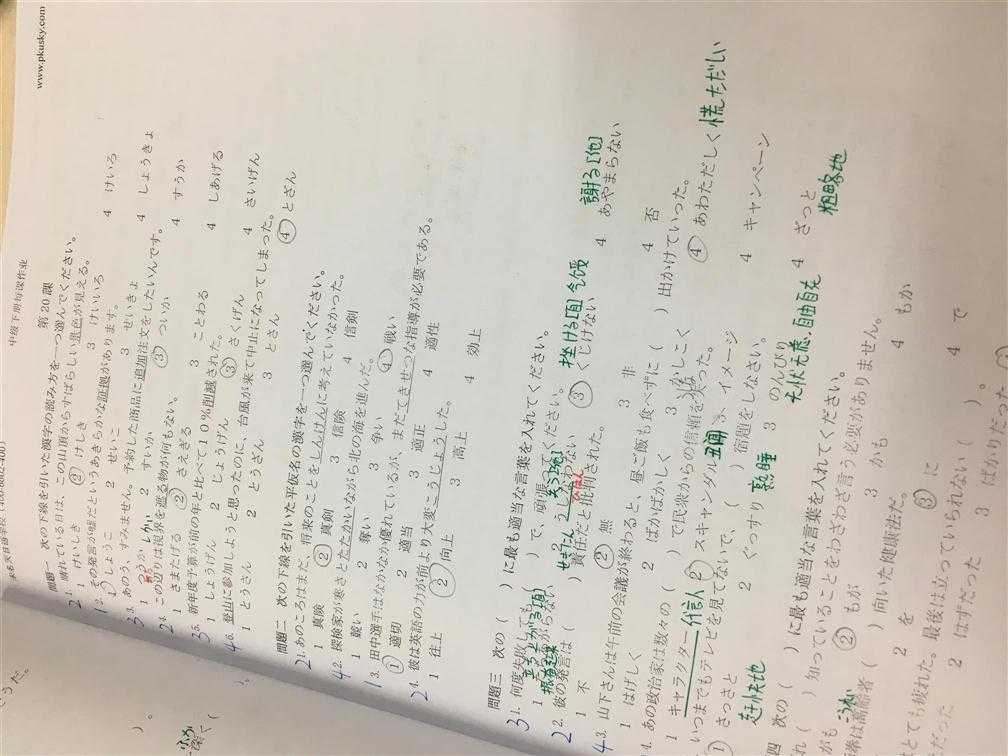 www.pkusky.com
中级下册每课作业
第20課
問題一 次の下線を引いた漢字の読み方を一つ選んでください。
2 1. 晴れている日は、この山頂からすばらしい景色が見える。
1 けいしき ②けしき 3 けいろ 4 けいろ
1 2. その発言が嘘だというあきらかな証拠があります。
①しょうこ 2 せいこ 3 せいきょ 4 しょうきょ
3 3. あのう、すみません。予約した商品に追加注文をしたいんです。
1 つうか 2 すいか ③ついか 4 すうか
2 4. この辺りは視界を遮る物が何もない。
1 さまたげる ②さえぎる 3 ことわる 4 しあげる
3 5. 新年度予算が前の年と比べて10%削減された。
1 しょうげん 2 じょうげん ③さくげん 4 さいげん
4 6. 登山に参加しようと思ったのに、台風が来て中止になってしまった。
1 とうさん 2 とうざん 3 とさん ④とざん
問題二 次の下線を引いた平仮名の漢字を一つ選んでください。
2 1. あのころはまだ、将来のことをしんけんに考えていなかった。
1 真険 ②真剣 3 信険 4 信剣
4 2. 探検家が寒さとたたかいながら北の海を進んだ。
1 競い 2 奪い 3 争い ④戦い
1 3. 田中選手はなかなか優れているが、まだてきせつな指導が必要である。
①適切 2 適当 3 適正 4 適性
2 4. 彼は英語の力が前より大変こうじょうした。
1 往上 ②向上 3 高上 4 効上
問題三 次の( )に最も適当な言葉を入れてください。
3 1. 何度失敗しても( )で、頑張ってください。
③くじけない 挫ける[自] 气馁
4 あやまらない 謝る[他]
2 2. 彼の発言は( )責任だと批判された。
1 不 ②無 3 非 4 否
4 3. 山下さんは午前の会議が終わると、昼ご飯も食べずに( )出かけていった。
1 はげしく 2 ばかばかしく 3 おかしく ④あわただしく 慌ただしい
あの政治家は数々の( )で民衆からの信頼を失った。
1 キャラクター ②スキャンダル 丑闻 3 イメージ 4 キャンペーン
いつまでもテレビを見てないで、( )宿題をしなさい。
①さっさと 2 ぐっすり 熟睡 3 のんびり 4 ざっと 粗略地
四 次の( )に最も適当な言葉を入れてください。
( )知っていることをわざわざ言う必要がありません。
②もが 3 かも 4 もか
高齢者( )向いた健康法だ。
2 を ③に 4 で
とても疲れた。最後は立っていられない( )
2 はずだった 3 ばかりだった